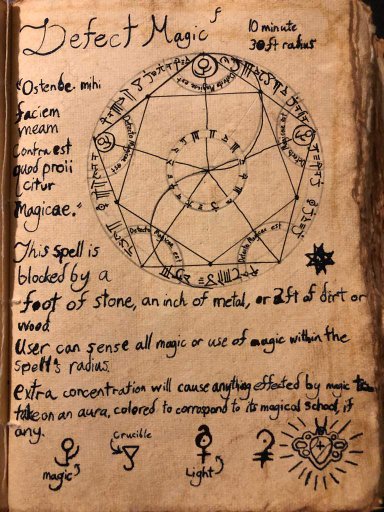 Detect Magic
10 minute
30ft radius
"Ostende. mihi
faciem
meam
contra est
quod proii
citur
Magicae."
Detecto Magicae est
Detecto Magicae est
Detecto Magicae est
Detecto Magicae est
Detecto Magicae est
This spell is
blocked by a
foot of stone, an inch of metal, or 2ft of dirt or
wood
User can sense all magic or use of magic within the
spell's radius.
extra concentration will cause anything effected by magic
take on an aura, colored to correspond to its magical school, if
any.
magic
Crucible
Light